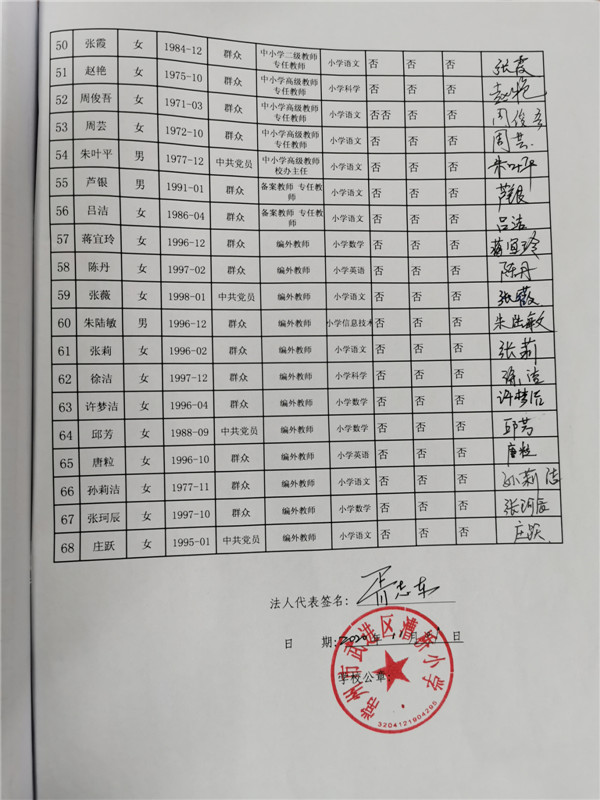 50 张霞 女 1984-12 群众 中小学二级教师 专任教师 小学语文 否 否 否 张霞
51 赵艳 女 1975-10 群众 中小学高级教师 专任教师 小学科学 否 否 否 赵艳
52 周俊吾 女 1971-03 群众 中小学高级教师 专任教师 小学语文 否否 否 否 周俊吾
53 周芸 女 1972-10 群众 中小学高级教师 专任教师 小学语文 否 否 否 周芸
54 朱叶平 男 1977-12 中共党员 中小学高级教师 校办主任 小学语文 否 否 否 朱叶平
55 芦银 男 1991-01 群众 备案教师 专任教师 小学语文 否 否 否 芦银
56 吕洁 女 1986-04 群众 备案教师 专任教师 小学语文 否 否 否 吕洁
57 蒋宜玲 女 1996-12 群众 编外教师 小学数学 否 否 否 蒋宜玲
58 陈丹 女 1997-02 群众 编外教师 小学英语 否 否 否 陈丹
59 张薇 女 1998-01 中共党员 编外教师 小学语文 否 否 否 张薇
60 朱陆敏 男 1996-12 群众 编外教师 小学信息技术 否 否 否 朱陆敏
61 张莉 女 1996-02 群众 编外教师 小学语文 否 否 否 张莉
62 徐洁 女 1997-12 群众 编外教师 小学科学 否 否 否 徐洁
63 许梦洁 女 1996-04 群众 编外教师 小学数学 否 否 否 许梦洁
64 邱芳 女 1988-09 中共党员 编外教师 小学数学 否 否 否 邱芳
65 唐粒 女 1996-10 群众 编外教师 小学英语 否 否 否 唐粒
66 孙莉洁 女 1977-11 群众 编外教师 小学语文 否 否 否 孙莉洁
67 张珂辰 女 1997-10 群众 编外教师 小学数学 否 否 否 张珂辰
68 庄跃 女 1995-01 中共党员 编外教师 小学语文 否 否 否 庄跃
法人代表签名: 志东
日 期: 年 11 月 日
学校公章:
常州市武进区漕桥小学
3204121904290